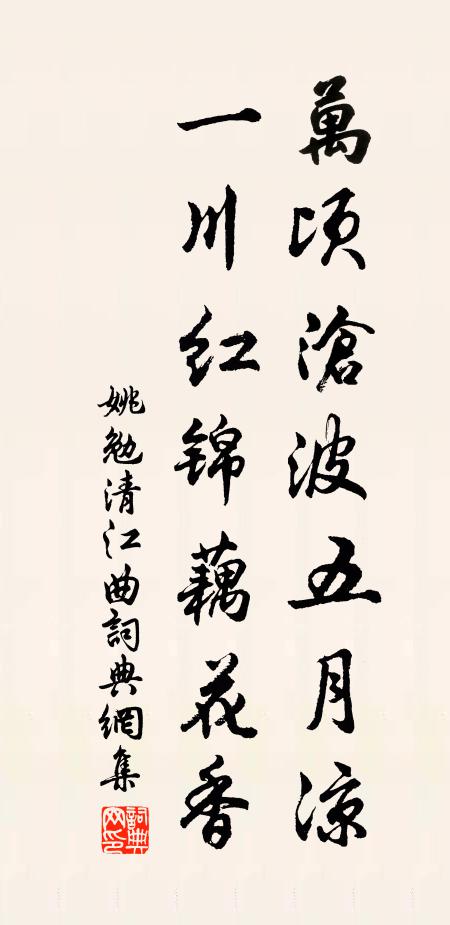 萬頃滄波五月涼
一川红锦藕花香
姚勉清江曲詞典網集
詞典网印